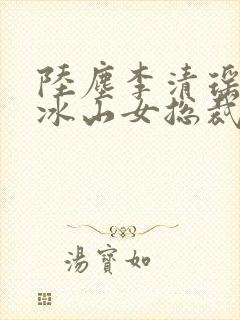 陸塵李清瑤
冰山女總裁
湯寶如